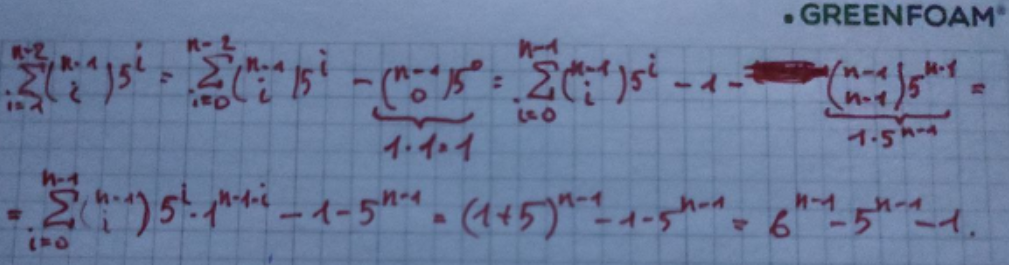 • GREENFOAM®
\sum_{i=1}^{n-2} \binom{n-1}{i} 5^i = \sum_{i=0}^{n-2} \binom{n-1}{i} 5^i - \underbrace{\binom{n-1}{0} 5^0}_{1 \cdot 1 = 1} = \sum_{i=0}^{n-1} \binom{n-1}{i} 5^i - 1 - \underbrace{\binom{n-1}{n-1} 5^{n-1}}_{1 \cdot 5^{n-1}} =
= \sum_{i=0}^{n-1} \binom{n-1}{i} 5^i \cdot 1^{n-1-i} - 1 - 5^{n-1} = (1+5)^{n-1} - 1 - 5^{n-1} = 6^{n-1} - 5^{n-1} - 1.